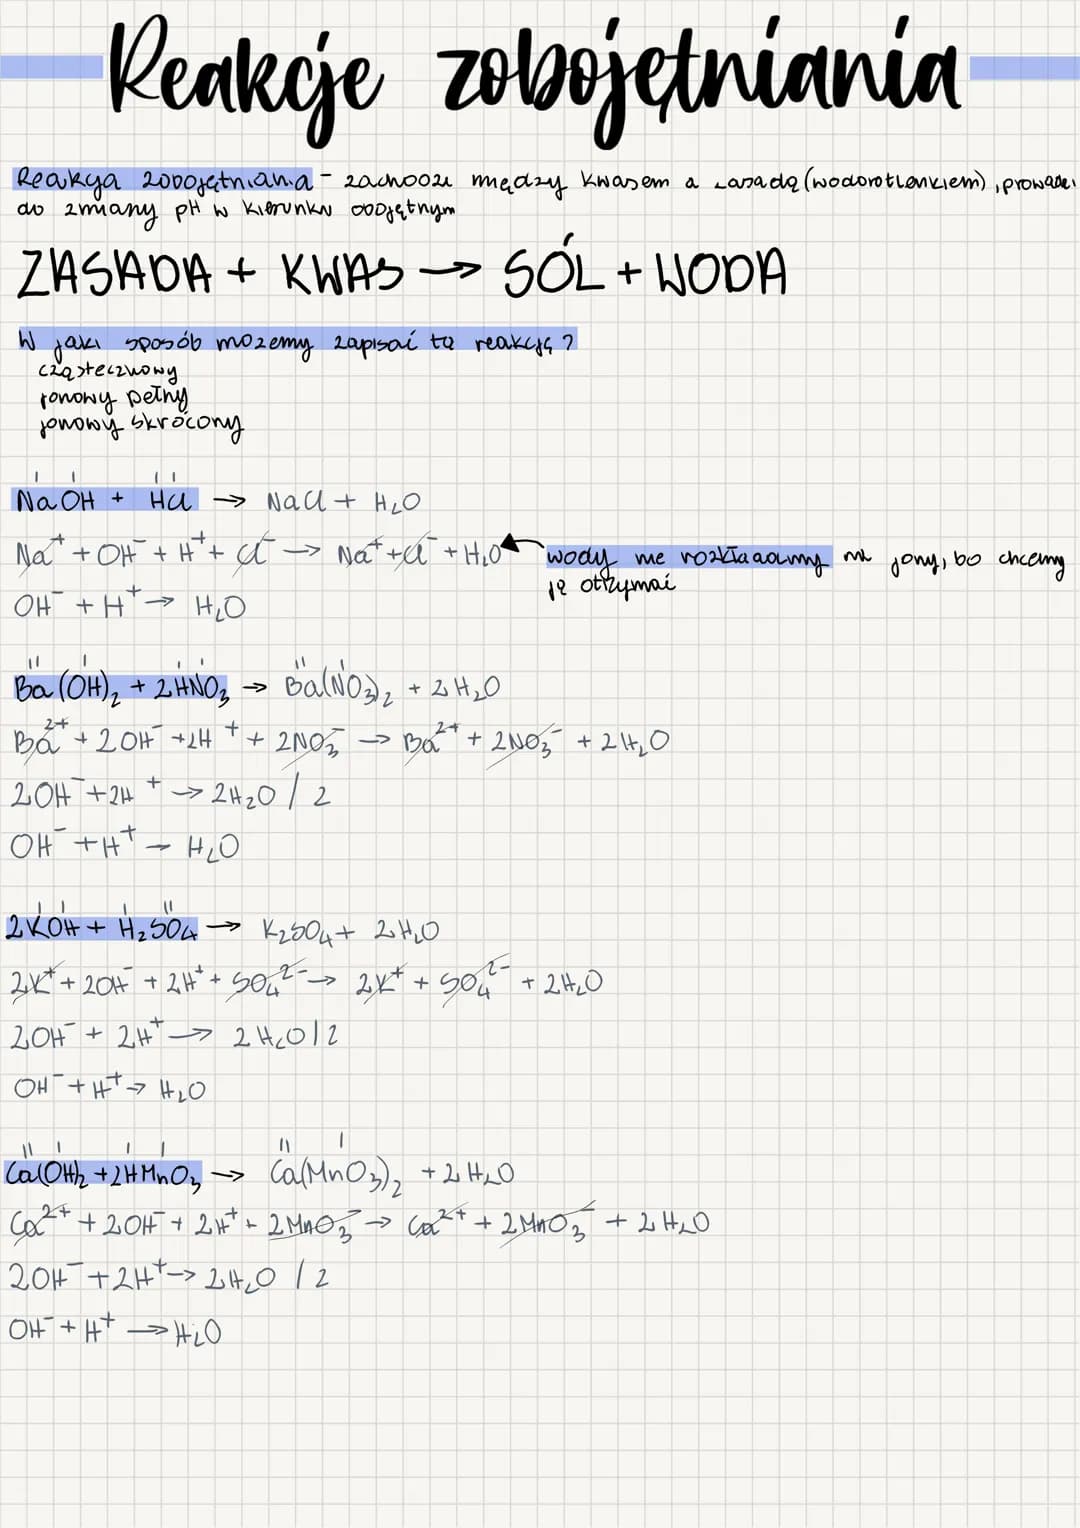 Reakcje zobojętniania
Reakcja zobojętniania - zachodzi między kwasem a zasadą (wodorotlenkiem), prowadzi
do zmiany pH w kierunku obojętnym
ZASADA + KWAS → SÓL + WODA
W jaki sposób możemy zapisać tą reakcję?
cząsteczkowy
jonowy pełny
jonowy skrócony
I I I I
NaOH + HCl → NaCl + H₂O
Na⁺ + OH⁻ + H⁺ + Cl⁻ → Na⁺ + Cl⁻ + H₂O
wody nie rozkładamy na jony, bo chcemy
ją otrzymać
OH⁻ + H⁺ → H₂O
II I I I II I
Ba(OH)₂ + 2HNO₃ → Ba(NO₃)₂ + 2H₂O
Ba²⁺ + 2OH⁻ + 2H⁺ + 2NO₃⁻ → Ba²⁺ + 2NO₃⁻ + 2H₂O
2OH⁻ + 2H⁺ → 2H₂O / 2
OH⁻ + H⁺ → H₂O
I I I II
2KOH + H₂SO₄ → K₂SO₄ + 2H₂O
2K⁺ + 2OH⁻ + 2H⁺ + SO₄²⁻ → 2K⁺ + SO₄²⁻ + 2H₂O
2OH⁻ + 2H⁺ → 2H₂O / 2
OH⁻ + H⁺ → H₂O
II I I I II I
Ca(OH)₂ + 2HMnO₃ → Ca(MnO₃)₂ + 2H₂O
Ca²⁺ + 2OH⁻ + 2H⁺ + 2MnO₃⁻ → Ca²⁺ + 2MnO₃⁻ + 2H₂O
2OH⁻ + 2H⁺ → 2H₂O / 2
OH⁻ + H⁺ → H₂O